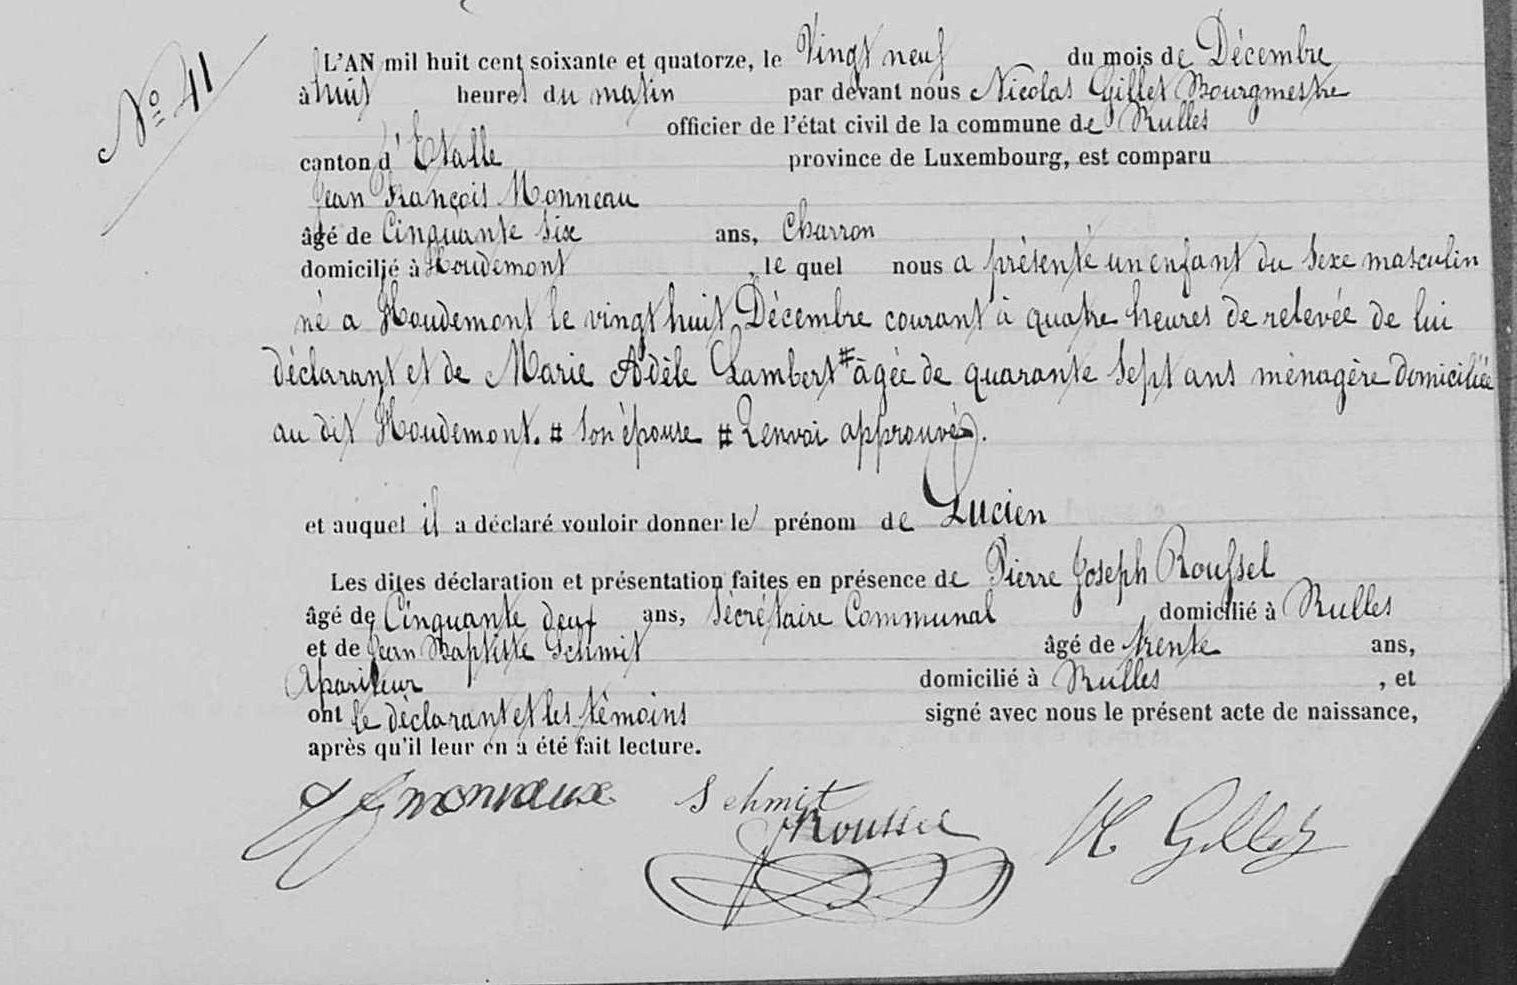 No 41
L'AN mil huit cent soixante et quatorze, le Vingt neuf du mois de Décembre
à huit heures du matin par devant nous Nicolas Gillet Bourgmestre
officier de l'état civil de la commune de Rulles
canton d'Etalle province de Luxembourg, est comparu
Jean François Monneau
âgé de Cinquante six ans, Charron
domicilié à Houdemont, le quel nous a présenté un enfant du sexe masculin
né a Houdemont le vingt huit Décembre courant à quatre heures de relevée de lui
déclarant et de Marie Adèle Lambert # âgée de quarante sept ans ménagère domiciliée
au dit Houdemont. # son épouse # Renvoi approuvé).
et auquel il a déclaré vouloir donner le prénom de Lucien
Les dites déclaration et présentation faites en présence de Pierre Joseph Roussel
âgé de Cinquante deux ans, sécrétaire Communal domicilié à Rulles
et de Jean Baptiste Schmit âgé de trente ans,
Apariteur domicilié à Rulles, et
ont le déclarant et les témoins signé avec nous le présent acte de naissance,
après qu'il leur en a été fait lecture.
J f monneaux Schmit
Roussel N Gillet